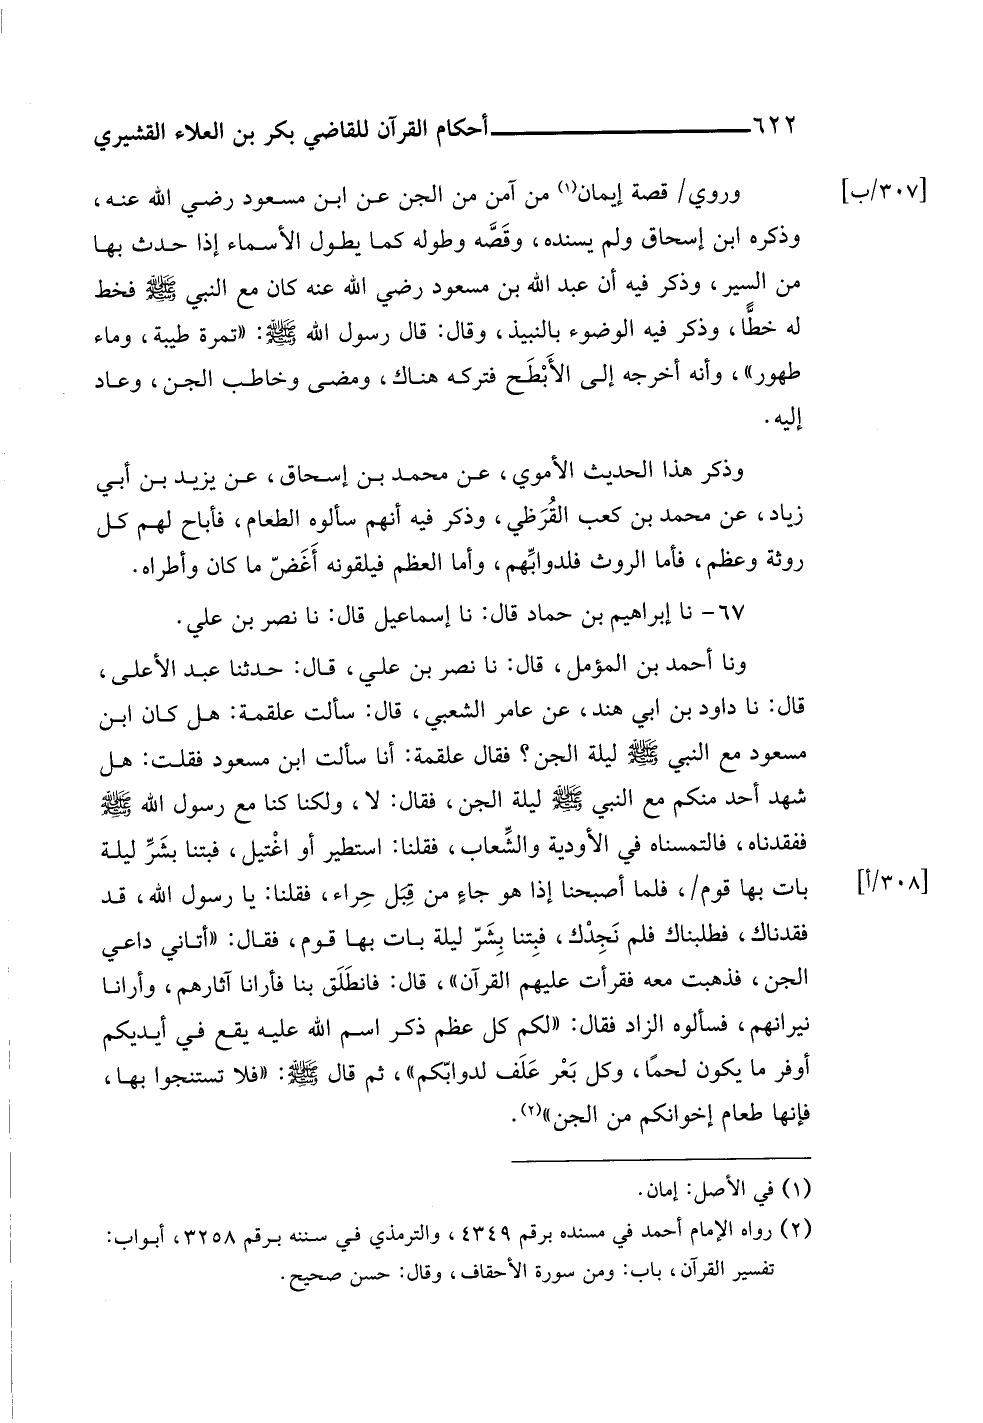 ٦٢٢ أحكام القرآن للقاضي بكر بن العلاء القشيري
[٣٠٧/ب] وروي/ قصة إيمان(١) من آمن من الجن عن ابن مسعود رضي الله عنه،
وذكره ابن إسحاق ولم يسنده، وقَصَّه وطوله كما يطول الأسماء إذا حدث بها
من السير، وذكر فيه أن عبد الله بن مسعود رضي الله عنه كان مع النبي ﷺ فخط
له خطًّا، وذكر فيه الوضوء بالنبيذ، وقال: قال رسول الله ﷺ: «تمرة طيبة، وماء
طهور»، وأنه أخرجه إلى الأَبْطَح فتركه هناك، ومضى وخاطب الجن، وعاد
إليه.
وذكر هذا الحديث الأموي، عن محمد بن إسحاق، عن يزيد بن أبي
زياد، عن محمد بن كعب القُرَظي، وذكر فيه أنهم سألوه الطعام، فأباح لهم كل
روثة وعظم، فأما الروث فلدوابِّهم، وأما العظم فيلقونه أَغَضّ ما كان وأطراه.
٦٧- نا إبراهيم بن حماد قال: نا إسماعيل قال: نا نصر بن علي.
ونا أحمد بن المؤمل، قال: نا نصر بن علي، قال: حدثنا عبد الأعلى،
قال: نا داود بن ابي هند، عن عامر الشعبي، قال: سألت علقمة: هل كان ابن
مسعود مع النبي ﷺ ليلة الجن؟ فقال علقمة: أنا سألت ابن مسعود فقلت: هل
شهد أحد منكم مع النبي ﷺ ليلة الجن، فقال: لا، ولكنا كنا مع رسول الله ﷺ
ففقدناه، فالتمسناه في الأودية والشِّعاب، فقلنا: استطير أو اغْتيل، فبتنا بشَرِّ ليلة
[٣٠٨/أ] بات بها قوم/، فلما أصبحنا إذا هو جاءٍ من قِبَل حِراء، فقلنا: يا رسول الله، قد
فقدناك، فطلبناك فلم نَجِدْك، فبِتنا بِشَرّ ليلة بات بها قوم، فقال: «أتاني داعي
الجن، فذهبت معه فقرأت عليهم القرآن»، قال: فانطَلَق بنا فأرانا آثارهم، وأرانا
نيرانهم، فسألوه الزاد فقال: «لكم كل عظم ذكر اسم الله عليه يقع في أيديكم
أوفر ما يكون لحمًا، وكل بَعْر عَلَف لدوابّكم»، ثم قال ﷺ: «فلا تستنجوا بها،
فإنها طعام إخوانكم من الجن»(٢).
(١) في الأصل: إمان.
(٢) رواه الإمام أحمد في مسنده برقم ٤٣٤٩، والترمذي في سننه برقم ٣٢٥٨، أبواب:
تفسير القرآن، باب: ومن سورة الأحقاف، وقال: حسن صحيح.